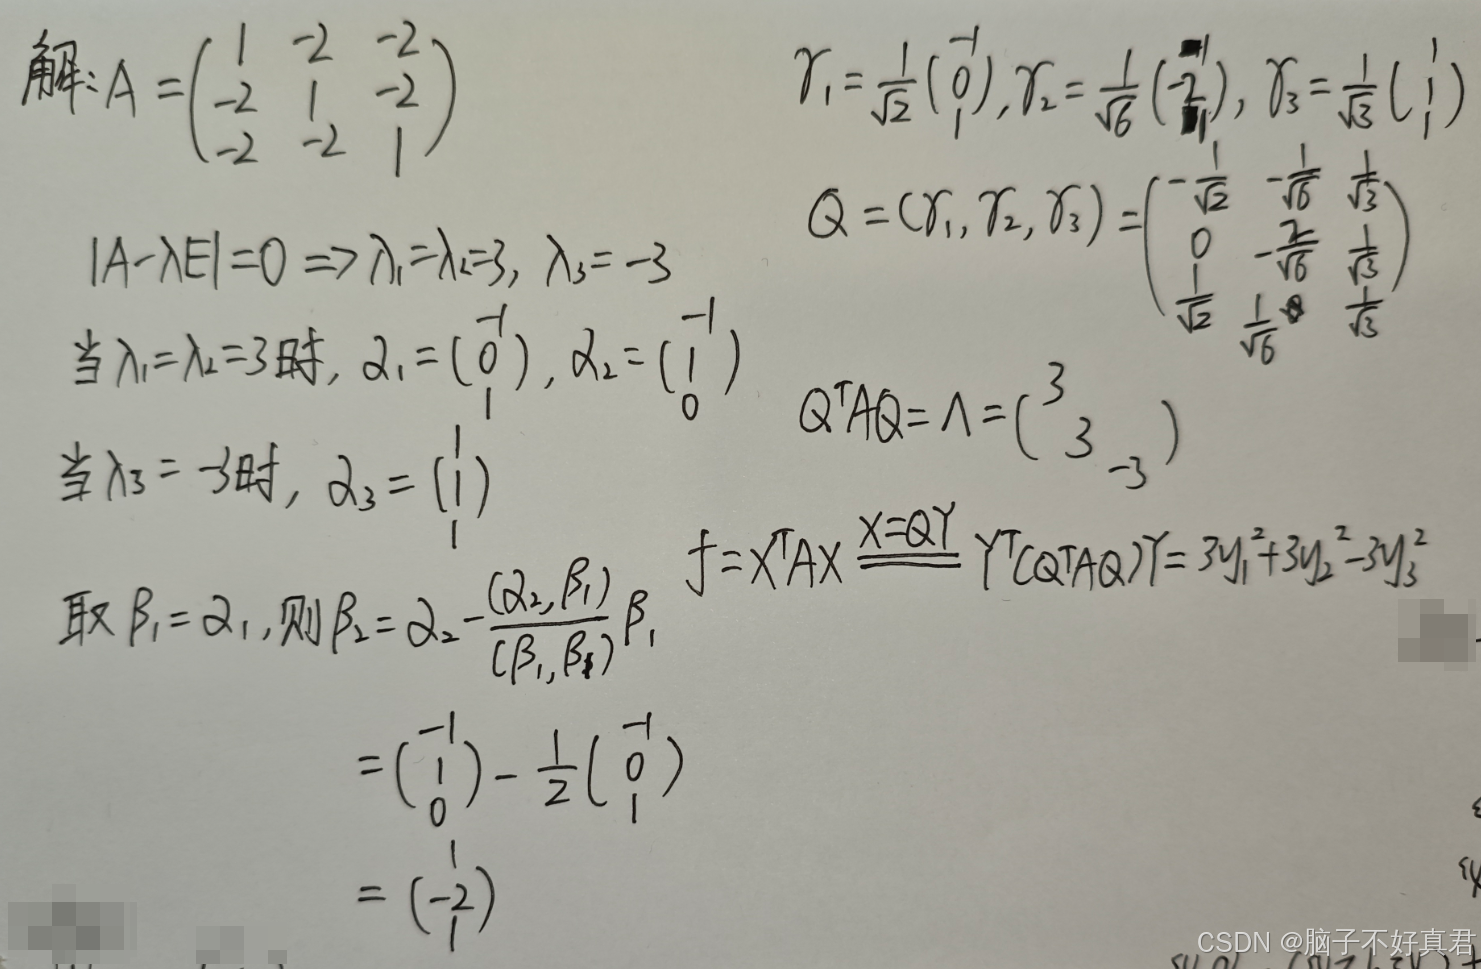 解: A = ( 1 -2 -2
-2 1 -2
-2 -2 1 )
|A-λE|=0 => λ₁=λ₂=3, λ₃=-3
当λ₁=λ₂=3时, α₁=(-1 0 1), α₂=(-1 1 0)
当λ₃=-3时, α₃=(1 1 1)
取β₁=α₁,则β₂=α₂-(α₂,β₁)/(β₁,β₁) β₁
=(-1 1 0)-1/2(-1 0 1)
=(1 -2 1)
γ₁=1/√2(-1 0 1), γ₂=1/√6(-1 -2 1), γ₃=1/√3(1 1 1)
Q=(γ₁, γ₂, γ₃)=( -1/√2 -1/√6 1/√3
0 -2/√6 1/√3
1/√2 1/√6 1/√3 )
QᵀAQ=Λ=(3 3 -3)
f=XᵀAX X=QY Yᵀ(QᵀAQ)Y=3y₁²+3y₂²-3y₃²
CSDN @脑子不好真君